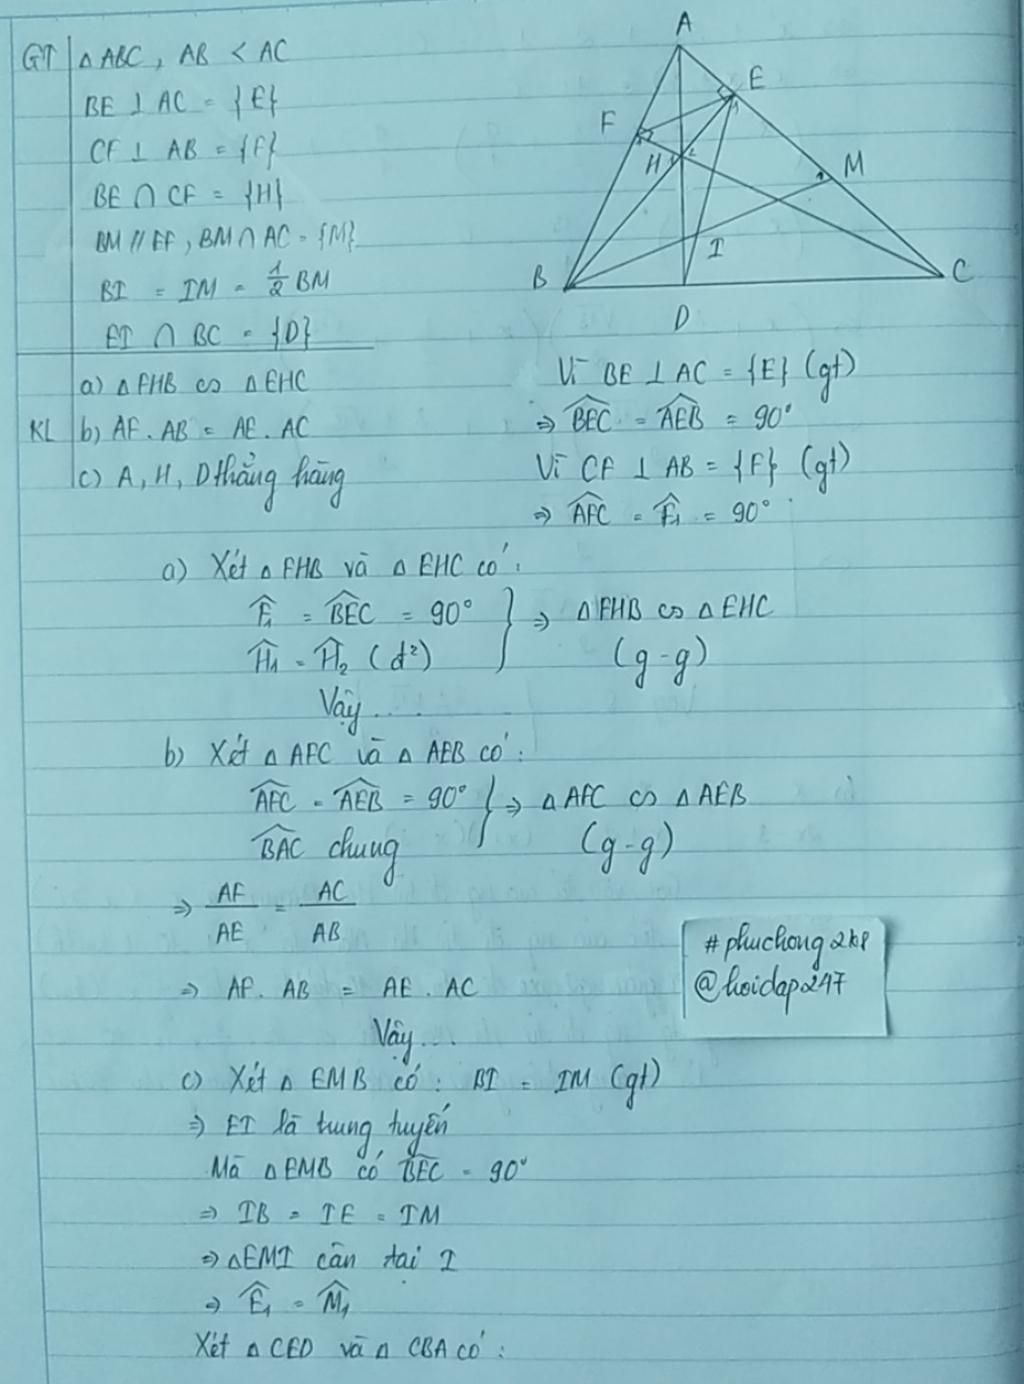 GT ΔABC, AB < AC
BE ⊥ AC = {E}
CF ⊥ AB = {F}
BE ∩ CF = {H}
BM // EF, BM ∩ AC = {M}
BI = IM = 1/2 BM
EI ∩ BC = {D}
a) ΔFHB ∽ ΔEHC
KL b) AF . AB = AE . AC
c) A, H, D thẳng hàng
A
E
F
H 1 2
M
1
1
I
B
C
D
Vì BE ⊥ AC = {E} (gt)
⇒ \widehat{BEC} = \widehat{AEB} = 90°
Vì CF ⊥ AB = {F} (gt)
⇒ \widehat{AFC} = \widehat{F₁} = 90°
a) Xét Δ FHB và Δ EHC có :
\widehat{F₁} = \widehat{BEC} = 90° } ⇒ Δ FHB ∽ Δ EHC
\widehat{H₁} = \widehat{H₂} (đ²) (g-g)
Vậy ....
b) Xét Δ AFC và Δ AEB có :
\widehat{AFC} = \widehat{AEB} = 90° } ⇒ Δ AFC ∽ Δ AEB
\widehat{BAC} chung (g-g)
⇒ AF/AE = AC/AB
⇒ AF . AB = AE . AC
Vậy...
#phuchong2k8
@hoidap247
c) Xét Δ EMB có : BI = IM (gt)
⇒ EI là trung tuyến
Mà Δ EMB có \widehat{BEC} = 90°
⇒ IB = IE = IM
⇒ ΔEMI cân tại I
⇒ \widehat{E₁} = \widehat{M₁}
Xét Δ CED và Δ CBA có :